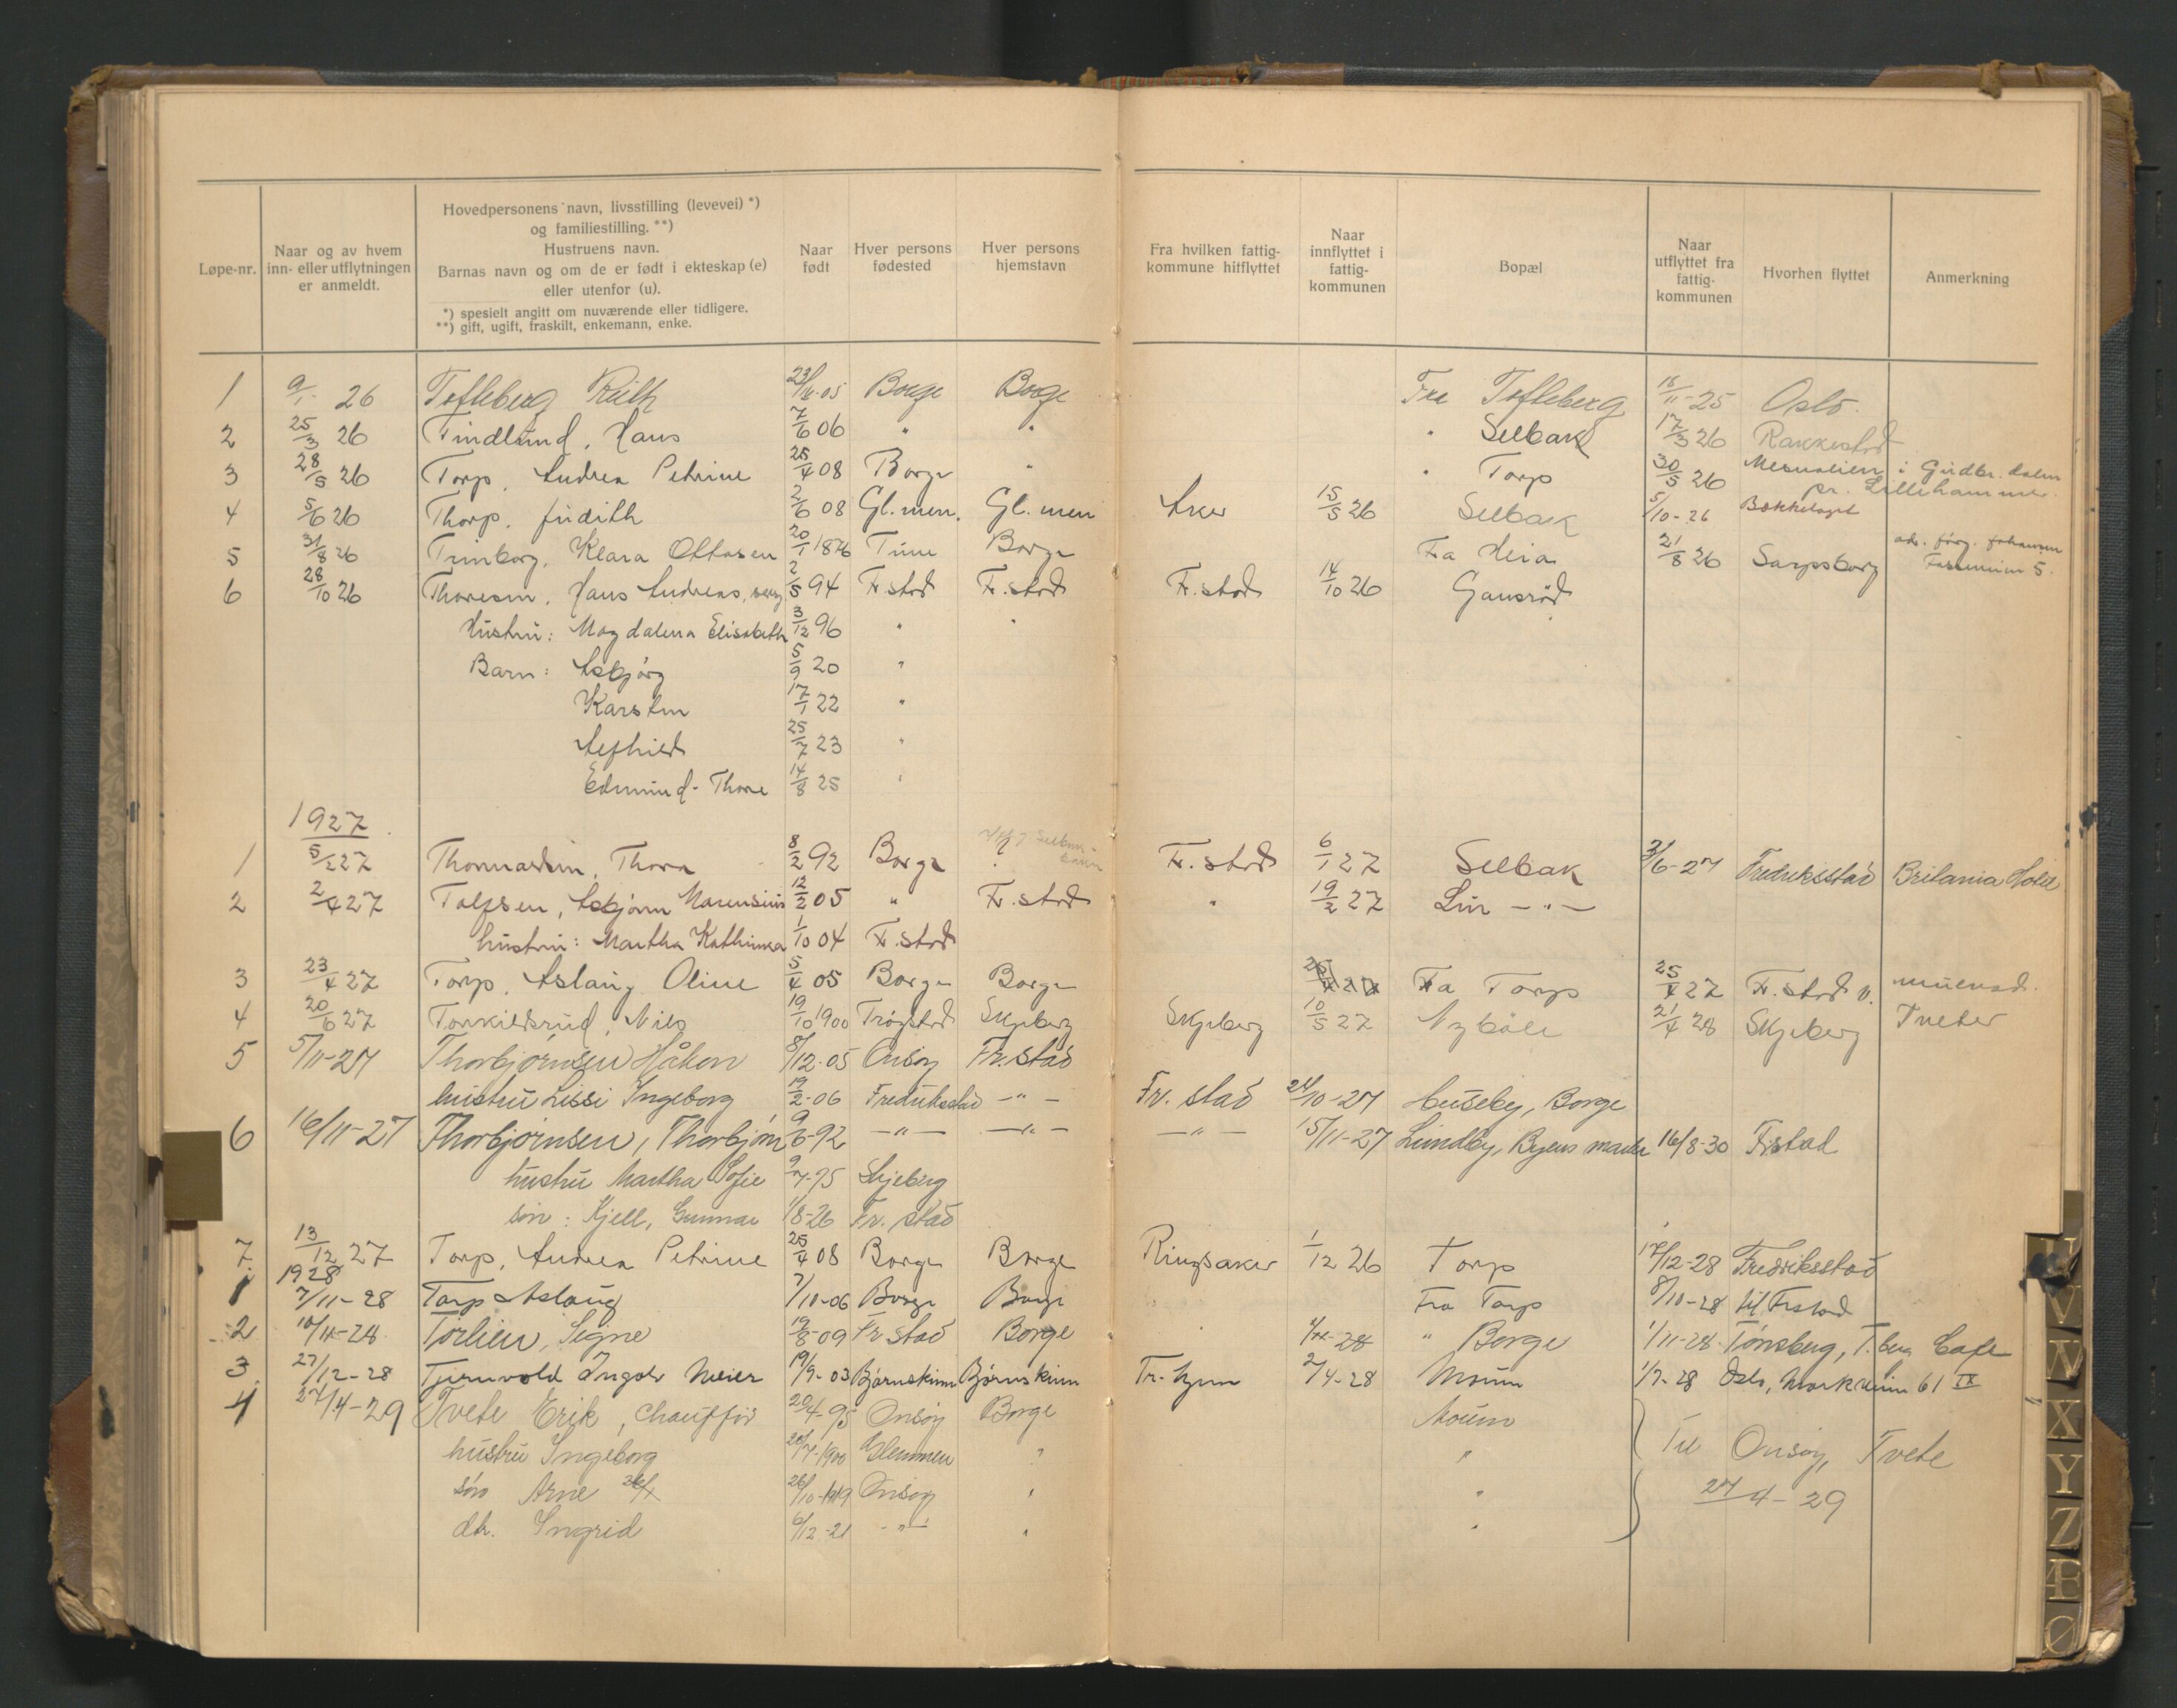 Løpe-nr.
Naar og av hvem
inn- eller utflytningen
er anmeldt.
Hovedpersonens navn, livsstilling (levevei) *)
og familiestilling. **)
Hustruens navn.
Barnas navn og om de er født i ekteskap (e)
eller utenfor (u).
*) spesielt angitt om nuværende eller tidligere.
**) gift, ugift, fraskilt, enkemann, enke.
Naar
født
Hver persons
fødested
Hver persons
hjemstavn
Fra hvilken fattig-
kommune hitflyttet
Naar
innflyttet i
fattig-
kommunen
Bopæl
Naar
utflyttet fra
fattig-
kommunen
Hvorhen flyttet
Anmerkning
1 9/1 26 Tofteberg Ruth Borge Borge Fra Tofteberg 18/11-25 Oslo.
2 25/3 26 Tindlund, Hans 7/6 06 " " " Selbak 17/3 26 Rakkestad
3 28/5 26 Torp, Andrea Petrine 25/4 08 Borge " " Torp 30/5 26 Mesnalien i Gudbr. dalen
pr. Lillehammer.
4 5/6 26 Thorp, Judith 2/6 08 Gl.men. Gl.men Aker 15/5 26 Selbak 5/10-26 Bækkelaget
5 31/8 26 Trinborg, Klara Ottosen 20/1 1876 Tune Borge Fra Heia 21/8 26 Sarpsborg adr. Jørg. Johansen
5.
6 28/10 26 Thoresen, Hans Andreas, 2/5 94 Fr.stad Fr.stad Fr.stad 14/10 26 Gansrød
Hustru: Magdalena Elisabeth 3/12 96 " "
Barn: Asbjørg 5/9 20 "
Karsten 17/1 22 "
Alfhild 25/7 23 "
Edmund-Thore 14/8 25 "
1927
1 5/2 27 Thomassen, Thora 8/2 92 Borge " Fr.stad 6/1 27 Selbak 3/6-27 Fredriksstad Britania Hotel
2 2/4 27 Tolfsen, Asbjørn Marensius 12/2 05 " Fr.stad " 19/2 27 Lur -"-
hustru: Martha Kathinka 1/10 04 Fr.stad
3 23/4 27 Torp, Aslaug Oline 5/4 05 Borge Borge Fra Torp 25/4 27 Fr.stad v.
4 20/6 27 Torkildsrud, Nils 19/10 1900 Trøgstad Skjeberg Skjeberg 10/5 27 Nybøle 21/4 28 Skjeberg Tveter
5 5/11-27 Thorbjørnsen Håkon 8/12-05 Onsøy Fr.stad
hustru Lissi Ingeborg 19/2-06 Fredriksstad -"- Fr.stad 24/10-27 Huseby, Borge
6 16/11-27 Thorbjørnsen, Thorbjørn 9/6-92 -"- -"- -"- 15/11-27 Lundby, Byens marker 16/8-30 Fr.stad
hustru Martha Sofie 9/7-95 Skjeberg
søn: Kjell, Gunnar 1/8-26 Fr.stad
7. 13/12 27 Torp, Andrea Petrine 25/4 08 Borge Borge Ringsaker 1/12 26 Torp 17/12-28 Fredriksstad
1928
1 7/11-28 Torp Aslaug 7/10-06 Borge Borge Fra Torp 8/10-28 til Frstad
2 10/11-28 Torlien, Signe 19/8-09 Fr stad Borge " Borge 1/11-28 Tønsberg, T.berg Cafe
3 27/12-28 Tjernvold Ingolv Meier 19/9-03 Bjørnskinn Bjørnskinn Tr.hjem 2/4-28 Moum 1/7-28 Oslo, Markveien 61 IX
4 27/4-29 Tvete Erik, chauffør 20/4-95 Onsøy Borge Moum
hustru Ingeborg 20/7-1900 Glemmen " " Til Onsøy, Tvete
søn Arne 26/10-1919 Onsøy " " 27/4-29
dtr. Ingrid 6/12-21 -"- " "
V
W
X
Y
Z
Æ
Ø